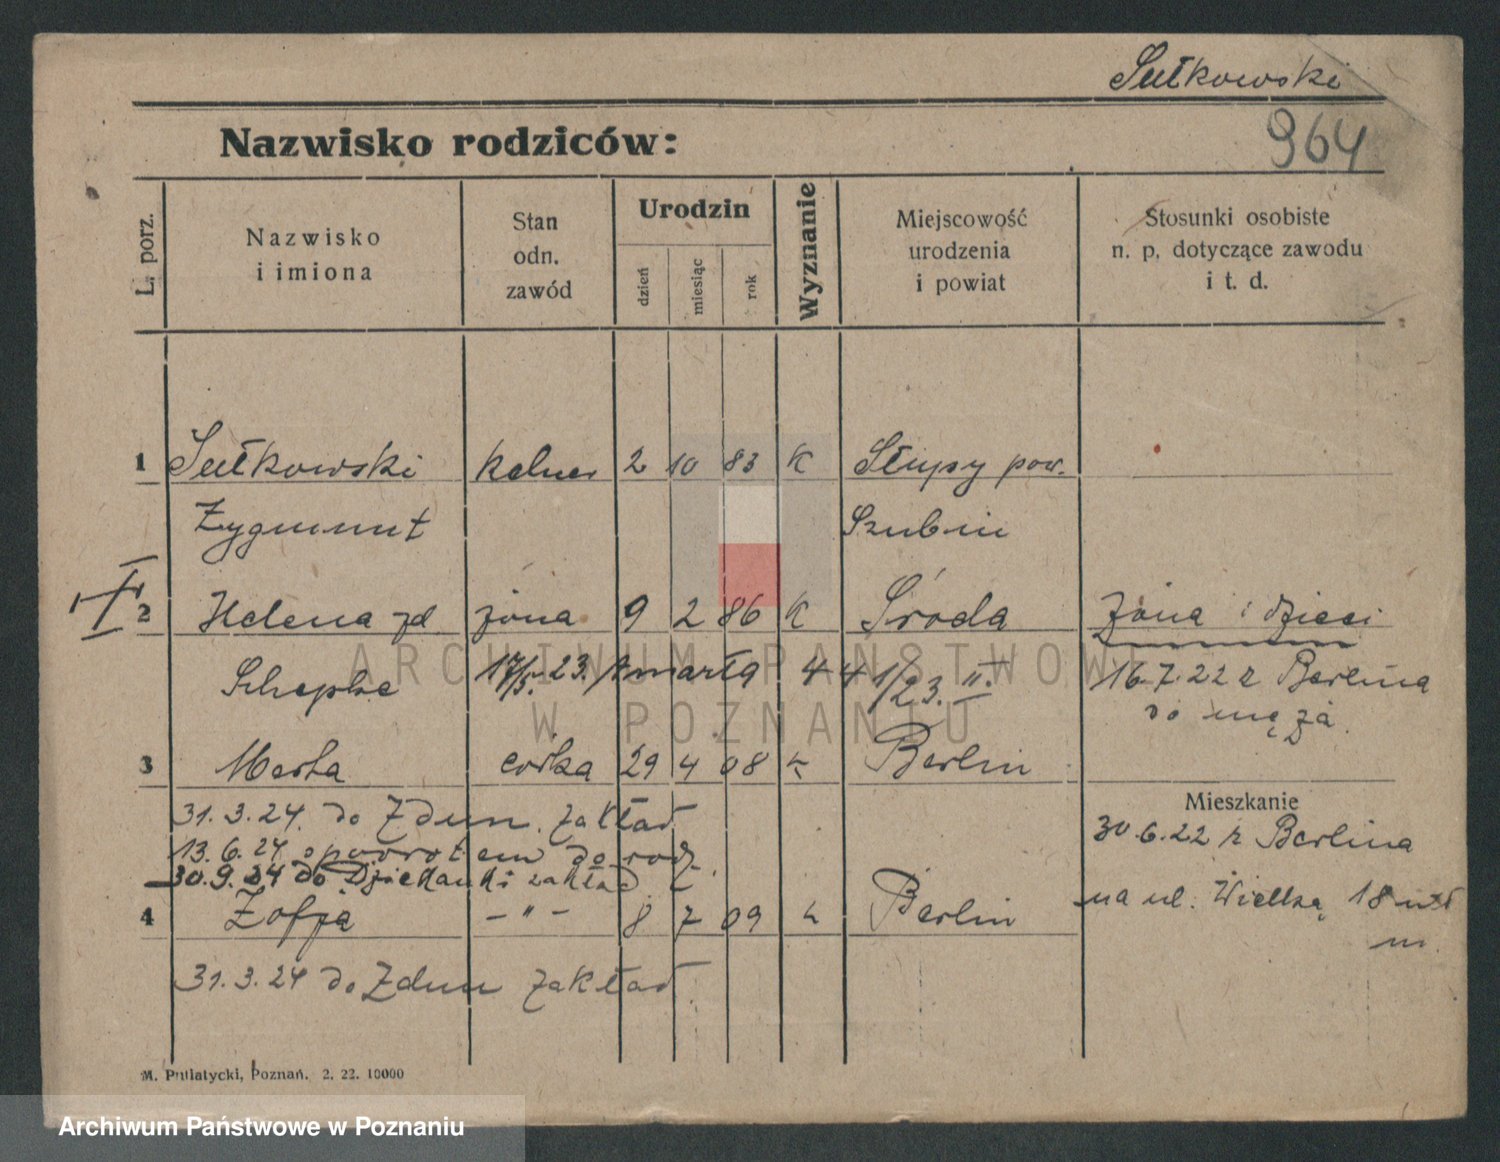 Sułkowski
Nazwisko rodziców:
964
L. porz.
Nazwisko
i imiona
Stan
odn.
zawód
Urodzin
dzień
miesiąc
rok
Wyznanie
Miejscowość
urodzenia
i powiat
Stosunki osobiste
n. p. dotyczące zawodu
i t. d.
1 Sułkowski kelner 2 10 83 K Słupy pow.
Zygmunt Szubin
I
2 Helena zd żona 9 2 86 K Środa Żona i dzieci
17/5. 23. zmarła 441/23. II.
16.7.22 z Berlina
do męża
3 Marta córka 29 4 08 K Berlin
Mieszkanie
31. 3. 24. do Zdun. zakład
30.6.22 z Berlina
13. 6. 24 z powrotem do rodz.
30. 9. 24 do Dziekanki zakład
na ul. Wielką 18
m.
4 Zofja — " — 8 7 09 K Berlin
31. 3. 24 do Zdun zakład.
M. Putiatycki, Poznań. 2. 22. 10000
ARCHIWUM PAŃSTWOWE
W POZNANIU
Archiwum Państwowe w Poznaniu